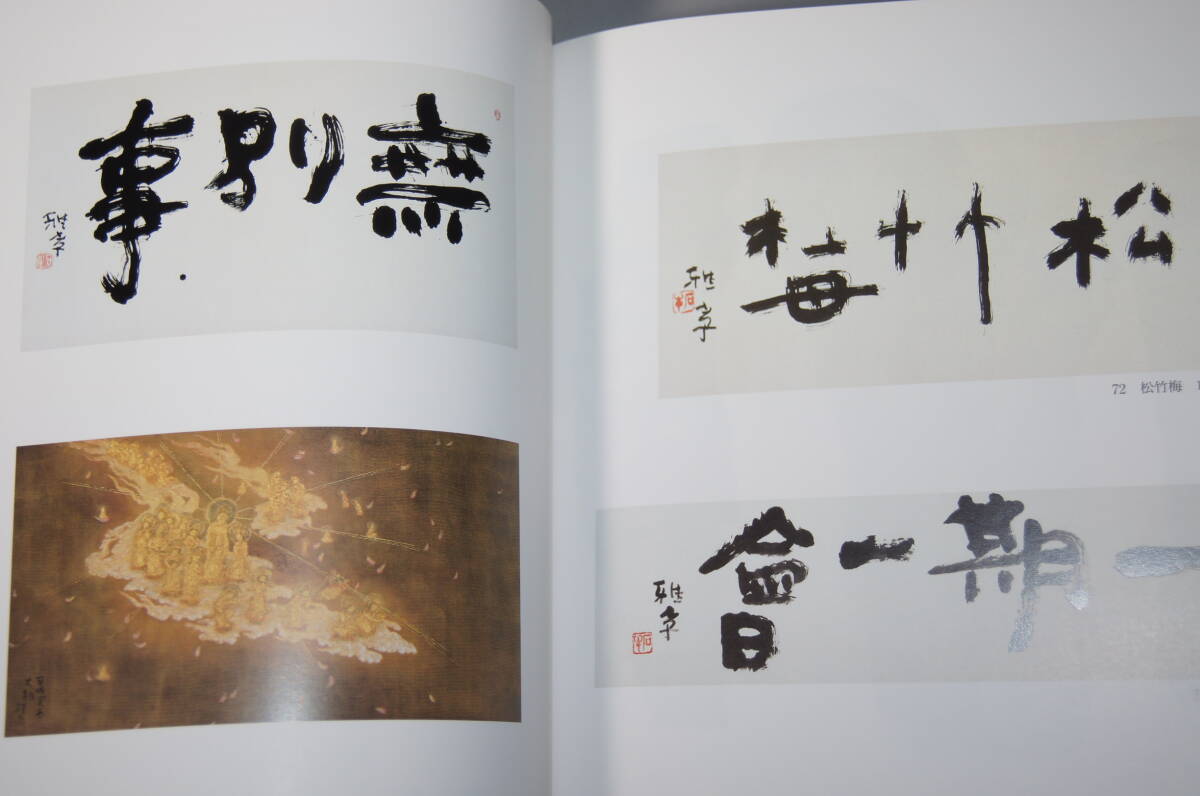 無別事
雅章
松竹梅
雅章
72 松竹梅
一期一會
雅章